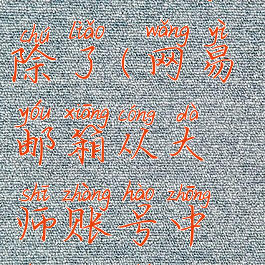 chú liǎo wǎng yì
除了(网易
yóu xiāng cóng dà
邮箱从大
shī zhàng hào zhōng
师账号中